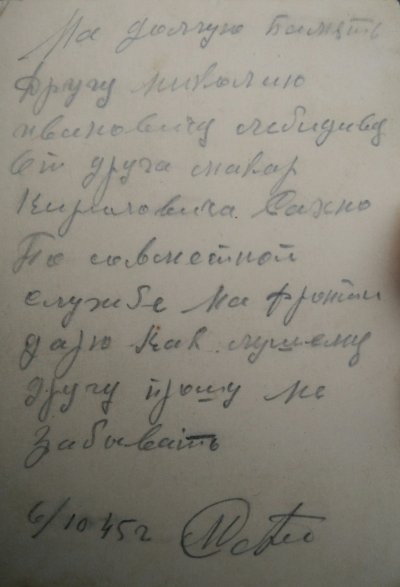 На долгую Память
Другу Миколаю
Ивановичу
От друга Макар
Кириловича Сахно
По совместной
службе На фронти
дарю Как лушему
другу прошу не
забывать
6/10 45 г